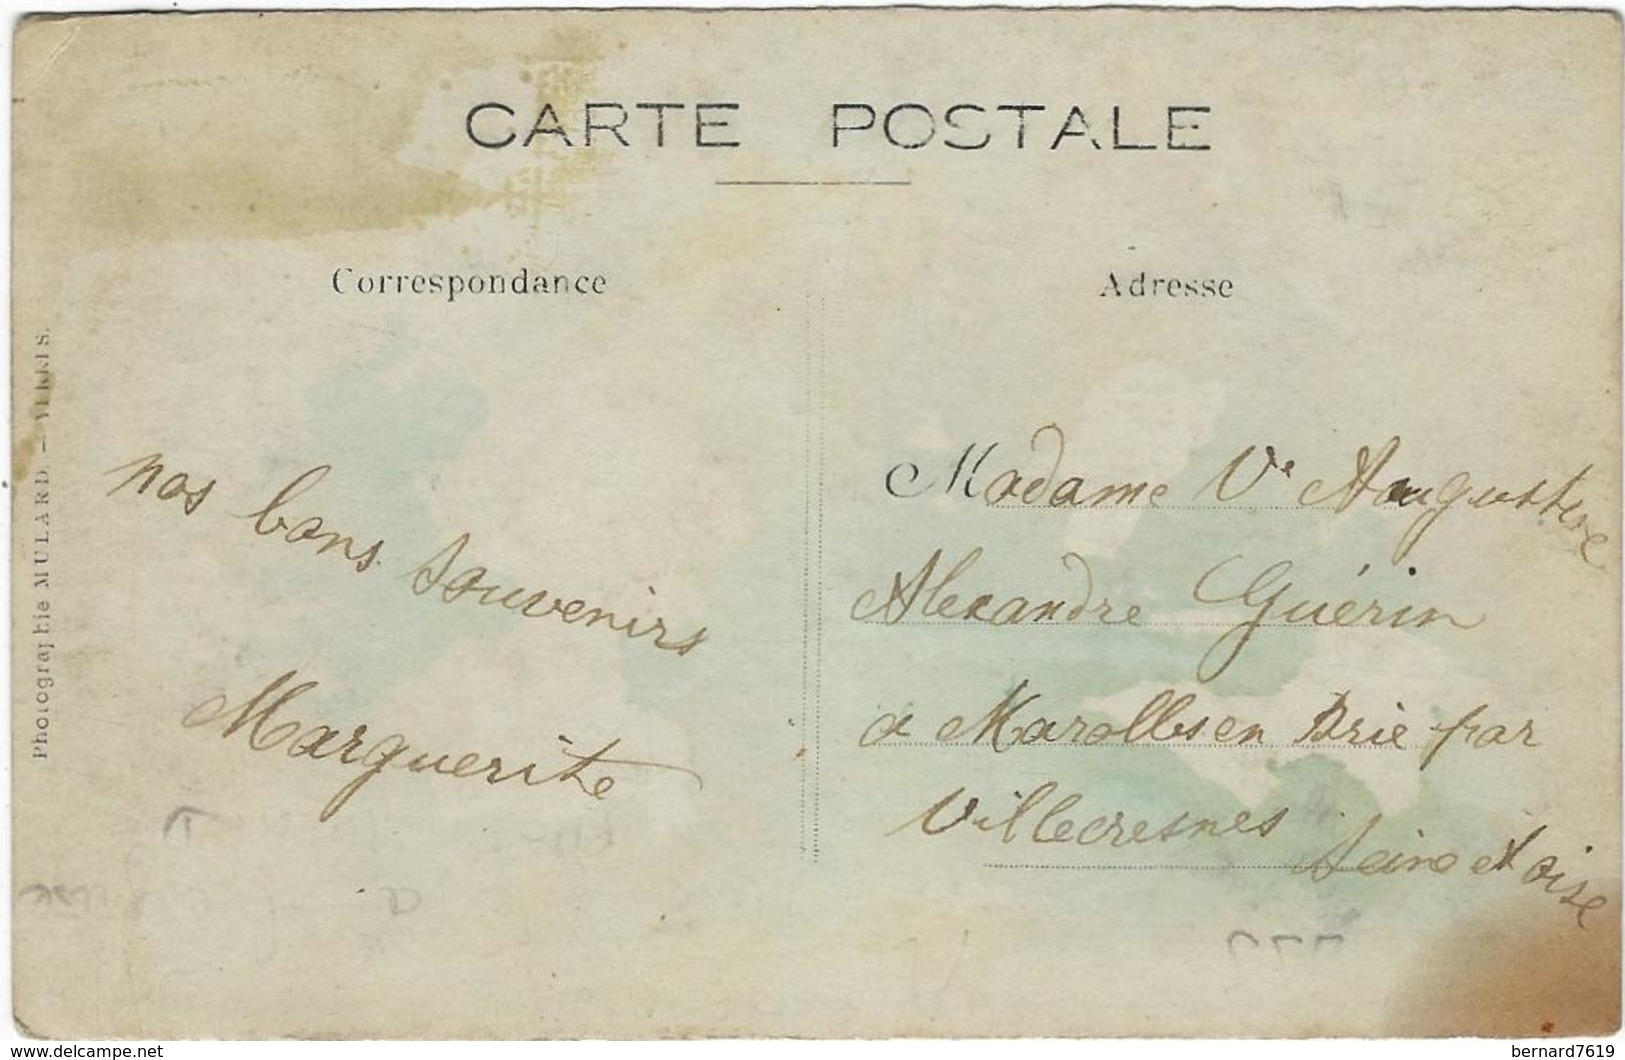 CARTE POSTALE
Correspondance
Adresse
Photographie MULARD. — YERRES.
nos bons souvenirs
Marguerite
Madame Ve Augustine
Alexandre Guérin
a Marolles en Brie par
Villecresnes Seine et oise
www.delcampe.net
bernard7619